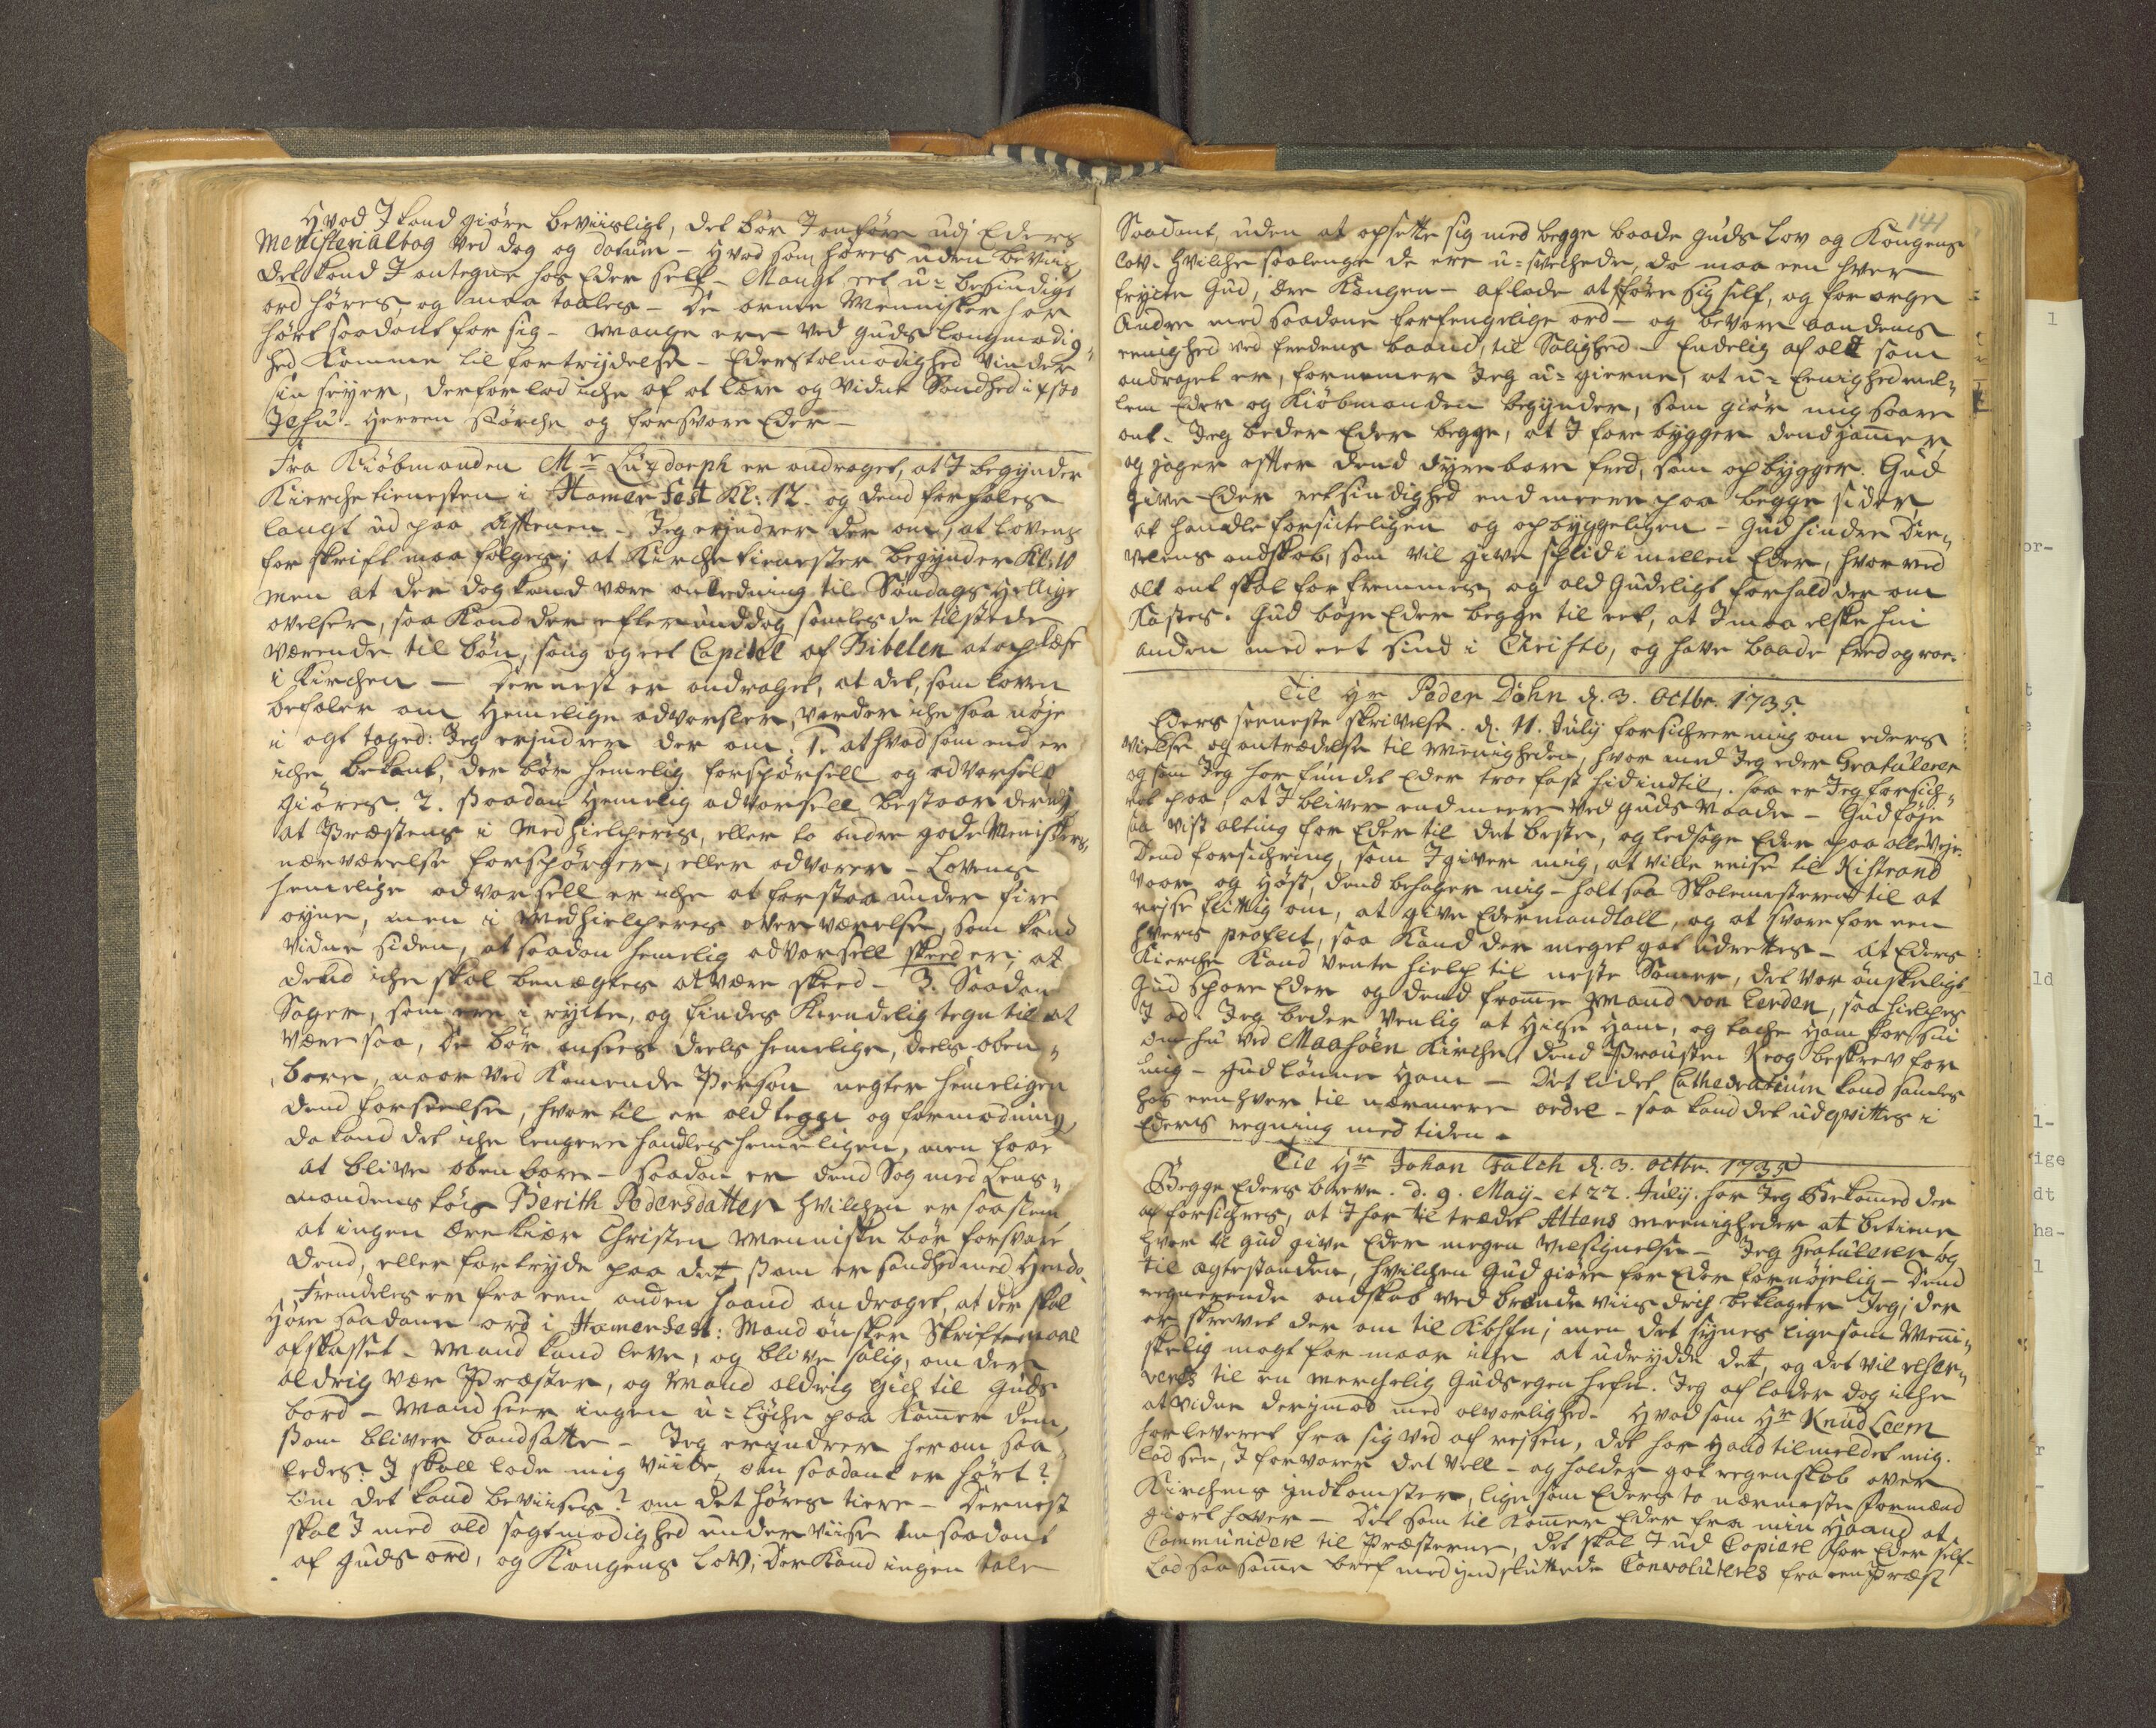 Hvad I kand giöre beviisligt, det bör I anföre udj Eders
Menisterialbog ved dag og datum - Hvad som höres uden beviis
det kand I antegne hos Eder self - Mangt eet u= besindigt
ord höres, og maa taales - De arme Mennisker har
hört saadant for sig - Mange ere ved Guds langmodig„
hed komme til fortrydelse - Eders taalmodighed vinder
sin seyer, derfor lad iche af at lære og vidne Sandhed i Xsto
Jesu - Herren störche og forsvare Eder -
Fra Kiöbmanden Mr Luxdorph er andraget, at I begynder
Kierche tienesten i Hamerfest Kl: 12. og dend forhales
langt ud paa Aftenen - Jeg erjndrer der om, at Lovens
forskrift maa fölges; at Kirche tienester begynder Kl: 10
men at der dog kand være anledning til Söndags Hellige
ovelser, saa kand der efter unddag samles de tilstede
værende til bön, sang og eet Capitel af Bibelen at oplæse
i Kirchen - Dernest er andraget, at det, som loven
befaler om Hemelige advarsler, vorder iche saa nöje
i agt taged: Jeg erjndrer der om. 1. at hvad som end er
iche bekant, der bör hemelig forspörsell og advarsell
giöres. 2. Saadan Hemelig advarsell bestaar derudj
at Præstens i Medhielperes, eller to andre gode Meniskers
nærværelse forspörger, eller advarer - Lovens
hemelige advarsell er iche at forstaa under fire
öyne, men i Medhielperes overværelse, som kand
vidne siden, at saadan hemelig advarsell skeed er; at
dend iche skal benægtes at være skeed - 3. Saadan
Sager, som ere i rychte, og findes Kiendelig tegn til at
være saa, De bör ansees deels hemelige, deels oben„
bare, naar ved Komende Person negter hemeligen
dend forseelse, hvor til er ald tegn og formodning,
da kand det iche lengere handles hemeligen, men faar
at blive obenbare - Saadan er dend Sag med Lens„
mandens töis Berith Pedersdatter hvilchen er saa slem
at ingen ære kiær Christen Menniske bör forsvare
dend, eller fortryde paa det, som er sandhed med Hende.
Fremdeles er fra een anden haand andraget, at der skal
Höre saadane ord i Hamerfest: Mand önsker Skriftemaal
afskaffet - Mand kand leve, og blive salig, om der
aldrig var Præster, og Mand aldrig gich til Guds
bord - Mand seer ingen u= lyche paa kommer dem,
som bliver bandsatte - Jeg erjndrer herom saa„
ledes: I skall lade mig viide, om saadant er hört?
Om det kand beviises? om det höres tiere - Dernest
skal I med ald sagtmodighed underviise om saadant
af Guds ord, og Kongens Lov; Der Kand ingen tale
141
Saadant, uden at opsette sig med begge baade Guds Lov og Kongens
Lov. Hvilche saalenge de ere u= svechede, da maa een hver
frycte Gud, ære Kongen - aflade at forföre sig self, og forarge
Andre med saadane forfengelige ord - og bevare aandens
eenighed ved fredens baand, til Salighed - Endelig af alt som
andraget er, fornemer Jeg u= gierne, at u= Eenighed mel„
lem Eder og Kiöbmanden begynder, som giör mig saare
ont. Jeg beder Eder begge, at I forebygger dend jammer,
og jager effter dend dyrebare fred, som opbygger. Gud
give Eder retsindighed end meere paa begge sider,
at handle forsicteligen og opbyggeligen - Gud hindre Die„
velens ondskab, som vil give splid i mellem Eder, hvor ved
alt ont skal forfremmes, og ald Gudeligt forhold der om
Kastes. Gud böje Eder begge til eet, at I maa elske hin
anden med eet sind i Christo, og have baade fred og roe.
Til Hr Peder Dahn d. 3. Octbr. 1735.
Eders seeneste skrivelse. d. 11. July forsichrer mig om eders
vielse og antrædelse til menigheden, hvor med Jeg eder Gratulerer
og som Jeg har fundet Eder troe fast hidindtil, saa er Jeg forsich„
ret paa, at I bliver end meere ved Guds Naade - Gud föje
saa vist alting for Eder til det beste, og ledsage Eder paa alle Veje
Dend forsichring, som I giver mig, at ville reise til Kistrand
Vaar og Höst, dend behager mig - holt saa Skolemesteren til at
rejse flittig om, at give Eder mandtall, og at svare for een
hvers profect, saa kand der meget got udrettes - At Eders
Kierche kand vente hielp til neste Somer, det var önskeligt
Gud spare Eder og dend fromme Mand von Cerden, saa hielpes
I ad. Jeg beder venlig at Hilse Ham, og tache Ham for sin
omhu ved Maasöen Kirche, dend Prousten Keog beskrev for
mig - Gud lönne Ham - Det lidet Cathedraticum kand samles
hos eenhver til nærmere ordre - saa kand det udqvittes i
Eders regning med tiden.
Til Hr Johan Falch d. 3. octbr. 1735
Begge Eders breve. d. 9. May - et 22. July. har Jeg Bekomed der
af forsichres, at I har til trædet Altens meenigheder at betiene
hvor til Gud give Eder megen velsignelse - Jeg Gratulerer og
til ægtestanden, hvilchen Gud giöre for Eder fornöjelig - Dend
regnerende ondskab ved brende viins drich beklager Jeg; der
er skrevet der om til Kbhfn; men det synes ligesom Menni„
skelig magt formaar iche at udrydde det, og det vil reser„
veres til en merchelig Guds egen hefn. Jeg aflader dog iche
at vidne derjmod med alvorlighed. Hvad som Hr Knud Leem
har leveret fra sig ved afreisen, det har Hand tilmeldet mig.
lad see, I forvarer det vell - og holder got regenskab over
Kirchens jndkomster, lige som Eders to nærmeste Formænd
giort haver - Det som til kommer Eder fra min Haand at
Communicere til Præsterne, det skal I ud Copiere for Eder self-
Lad saa samme bref med jndsluttede Convoluteres fra een Præst